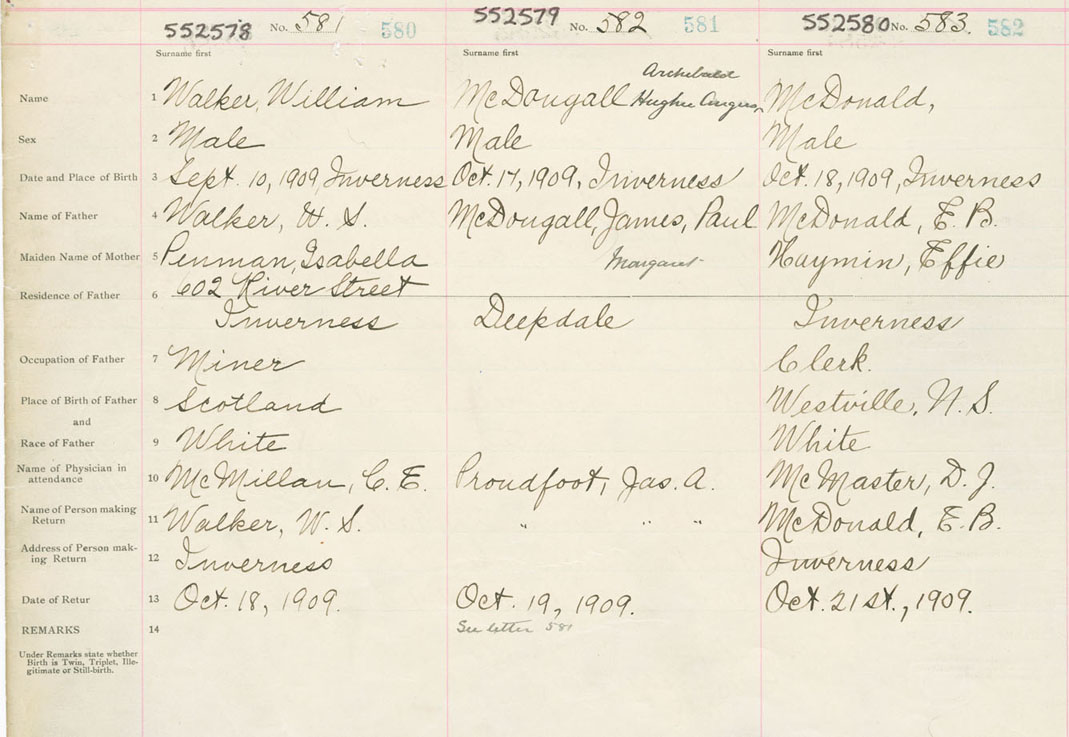 552578 No. 581 580 552579 No. 582 581 552580 No. 583. 582
Surname first Surname first Surname first
Archibald
Name 1 Walker, William McDougall Hughie Angus McDonald,
Sex 2 Male Male Male
Date and Place of Birth 3 Sept. 10, 1909, Inverness Oct. 17, 1909, Inverness Oct. 18, 1909, Inverness
Name of Father 4 Walker, W. S. McDougall, James, Paul McDonald, E. B.
Maiden Name of Mother 5 Penman, Isabella Margaret Haymin, Effie
Residence of Father 6 602 River Street
Inverness Deepdale Inverness
Occupation of Father 7 Miner Clerk.
Place of Birth of Father 8 Scotland Westville, N. S.
and
Race of Father 9 White White
Name of Physician in
attendance 10 McMillan, C. E. Proudfoot, Jas. A. McMaster, D. J.
Name of Person making
Return 11 Walker, W. S. " " " McDonald, E. B.
Address of Person mak-
ing Return 12 Inverness Inverness
Date of Retur 13 Oct. 18, 1909. Oct. 19, 1909. Oct. 21st., 1909.
REMARKS 14 See letter 581
Under Remarks state whether
Birth is Twin, Triplet, Ille-
gitimate or Still-birth.